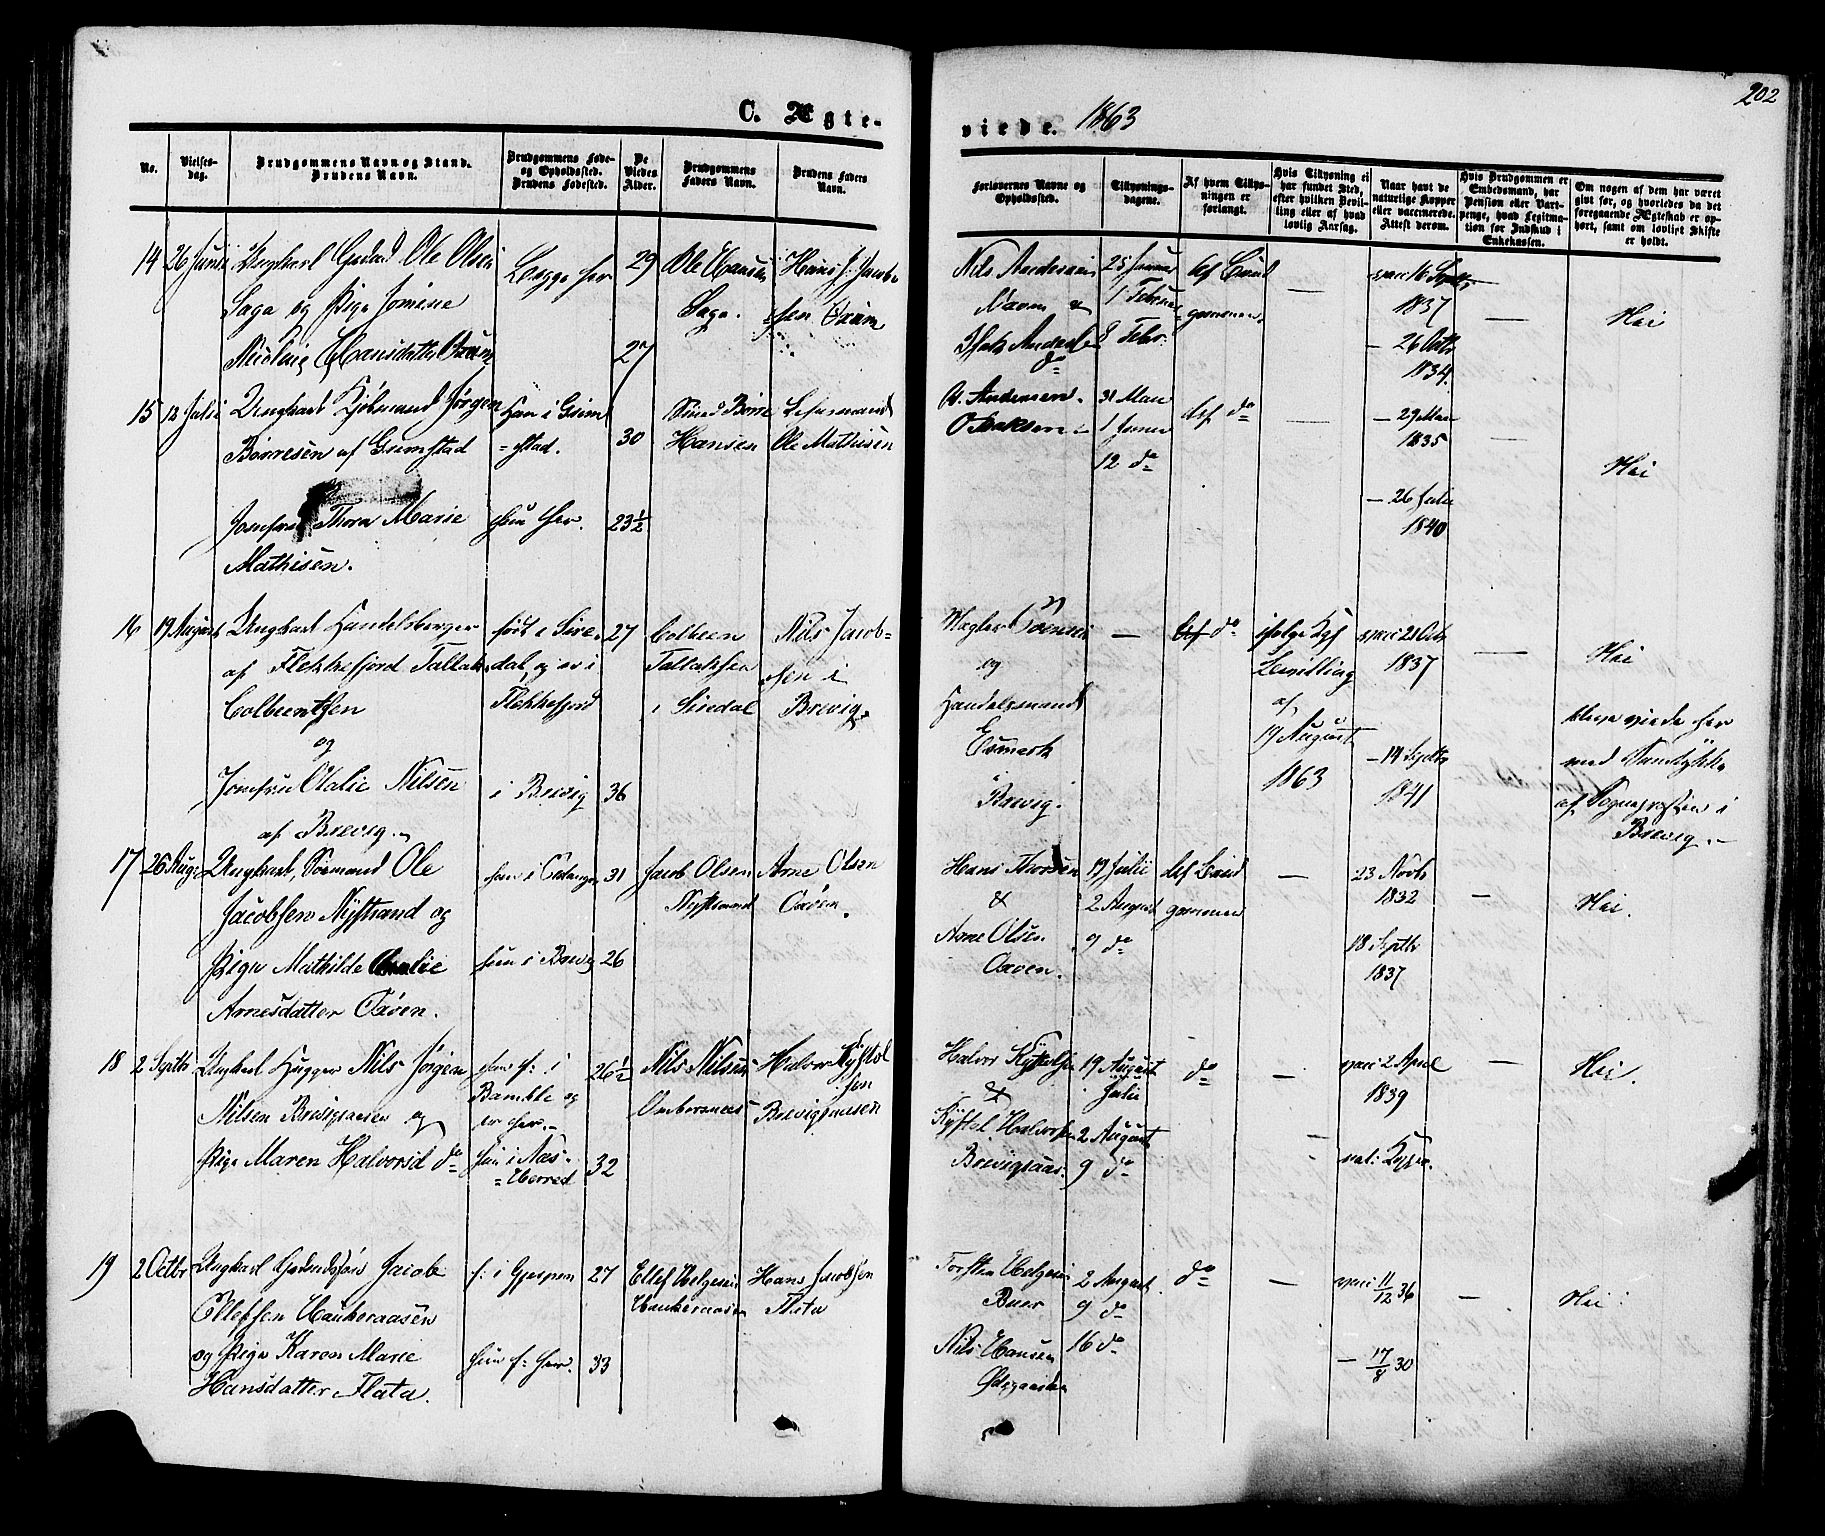 C. Ægte-
viede. 1863
202
No.
Vielses-
dag.
Brudgommens Navn og Stand.
Brudens Navn.
Brudgommens Føde-
og Opholdssted.
Brudens Fødested.
De
Viedes
Alder.
Brudgommens
Faders Navn.
Brudens Faders
Navn.
Forlovernes Navne og
Opholdssted.
Tillysnings-
dagene.
Af hvem Tillys-
ningen er
forlangt.
Hvis Tillysning ei
har fundet Sted,
efter hvilken Bevil-
ling eller af hvad
lovlig Aarsag.
Naar havt de
naturlige Kopper
eller vaccinerede.
Attest derom.
Hvis Brudgommen er
Embedsmand, har
Pension eller Vart-
penge, hvad Legitima-
tion for Indskud i
Enkekassen.
Om nogen af dem har været
gift før, og hvorledes da det
foregaaende Ægteskab er op-
hørt, samt om lovligt Skifte
er holdt.
14 26 Juni Ungkarl Ole Olsen
Saga og Pige Jomine
Nicoline Hansdatter
29
27
Ole Hansen
Saga.
Hans J: Jacob-
sen
Nils Andersen
&
Isak
do
25 Januar
1 Februar
8 Febr.
16 Septbr
1837
26 Octb
1834.
Nei
15 12 Julii Ungkarl Kjøbmand Jørgen
Börresen af Grimstad
Jomfru Thora Marie
Mathisen.
Han i Grim-
stad.
hun her.
30
23½
Börre
Hansen
Lensmand
Ole Mathisen
Andersen
O Isaksen
31 Mai
12 do
do
29 Mai
1835
26 Julii
1840
Nei
16 19 August Ungkarl Handelsborger
af Flekkefjord Tallak
Colbeentsen
og
Jomfru Otalie Nilsen
af Brevig.
født i Sire-
dal, og er i
Flekkefjord
i Brevig
27
36
Colbeen
Tallaksen
i Siredal
Nils Jacob-
sen i
Brevig.
Mægler
og
Handelsmand
Esmark
Brevig.
—
do
ifølge Kgl
Bevilling
af
19 August
1863
vacc 21 Octb
1837
14 Septb
1841
Nei
bleve viede her
med Samtykke
af Sognepresten i
Brevig.
17 26 Aug. Ungkarl, Sömand Ole
Jacobsen Nystrand og
Pige Mathilde Amalie
Arnesdatter Oxöen.
han i Eidanger
hun i Brevig
31
26
Jacob Olsen
Nystrand
Arne Olsen
Oxöen.
Hans Thorsen
&
Arne Olsen
Oxöen.
19 Julii
2 August
9 do
af Brud
gommen
—
23 Novb
1832
18 Septb
1837
—
Nei.
18 2 Septb Ungkarl Hugger Nils Jörgen
Nilsen Brevigsaasen og
Pige Maren Halvorsd do
han f: i
Bamble og
er her.
hun i Næs-
Herred
26½
32
Nils Nilsen
Halvor Kystol
sen
Brevigsaasen
Halvor Kystolsen
&
Kystol Halvorsen
Brevigsaas.
19 August
Julii
2 August
9 do
do
—
vacc 2 April
1839
nat: Kopper.
—
Nei.
19 2 Octbr Ungkarl Jacob
Ellefsen Haukeraasen
og Pige Karen Marie
Hansdatter Flata.
f: i Gjerpen
hun f: her.
27
33
Ellef Helgesen
Haukeraasen
Hans Jacobsen
Flata
Torsten Helgesen
Buer
Nils Hansen
2 August
9 do
16 do
do
—
vacc 11/12 36
— 17/8 30
—
Nei